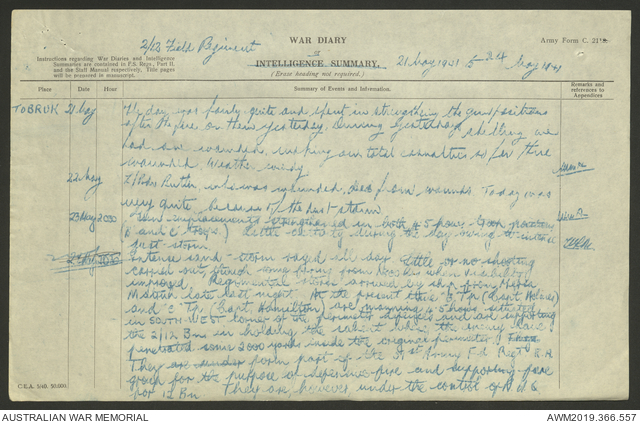 2/12 Field Regiment
WAR DIARY
or
INTELLIGENCE SUMMARY.
(Erase heading not required.)
Army Form C.
21 May 1941
May 1941
Instructions regarding War Diaries and Intelligence
Summaries are contained in F.S. Regs., Part II.
and the Staff Manual respectively. Title pages
will be prepared in manuscript.
Place
Date
Hour
Summary of Events and Information.
Remarks and
references to
Appendices
TOBRUK 21 May The day was fairly quite and spent in strengthening the gun positions
after the fire on them yesterday. During yesterdays shelling we
had one wounded, making our total casualties so far three
wounded. Weather windy.
22 May L/Bdr who was wounded, died from wounds. Today was
very quite because of the dust storm.
23 May 2000 Gun emplacements strengthened in both 4.5 how. Troop positions
(B and C Troops). Little activity during the day owing to intense
dust-storm.
Intense sand-storm raged all day. Little or no shooting
carried out, though some firing from when visibility
improved. Regimental stores arrived by ship from Mersa
Matruh late last night. At the present time "B" Tp (Capt
and "C" Tp (Capt. Hamilton) are manning 4.5 hows situated
in SOUTH-WEST corner of the perimeter defences and are supporting
the 2/12 Bn in holding the salient where the enemy have
penetrated some 2000 yards inside the original perimeter.
They are under form part of the Fd Regt R.A.
group for the purpose of defensive fire and supporting fire
for 12 Bn. They are, however, under the control of
AUSTRALIAN WAR MEMORIAL
AWM2019.366.557